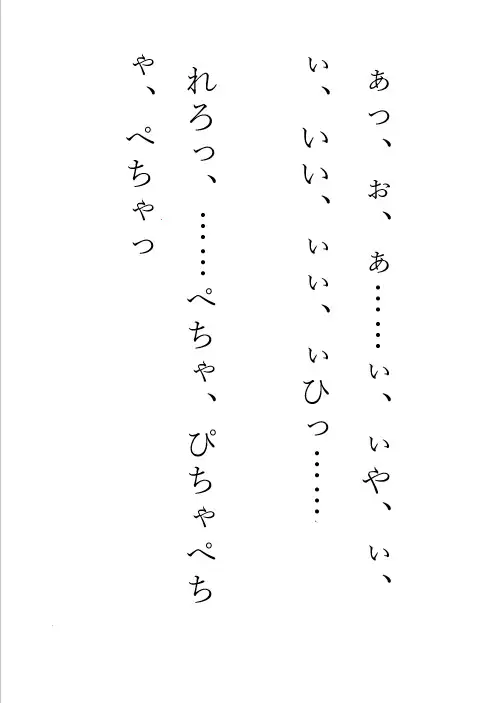 ぁっ、ぉ、ぁ……ぃ、ぃや、ぃ、
ぃ、いい、ぃぃ、ぃひっ……
れろっ、……ぺちゃ、ぴちゃぺち
ゃ、ぺちゃっ